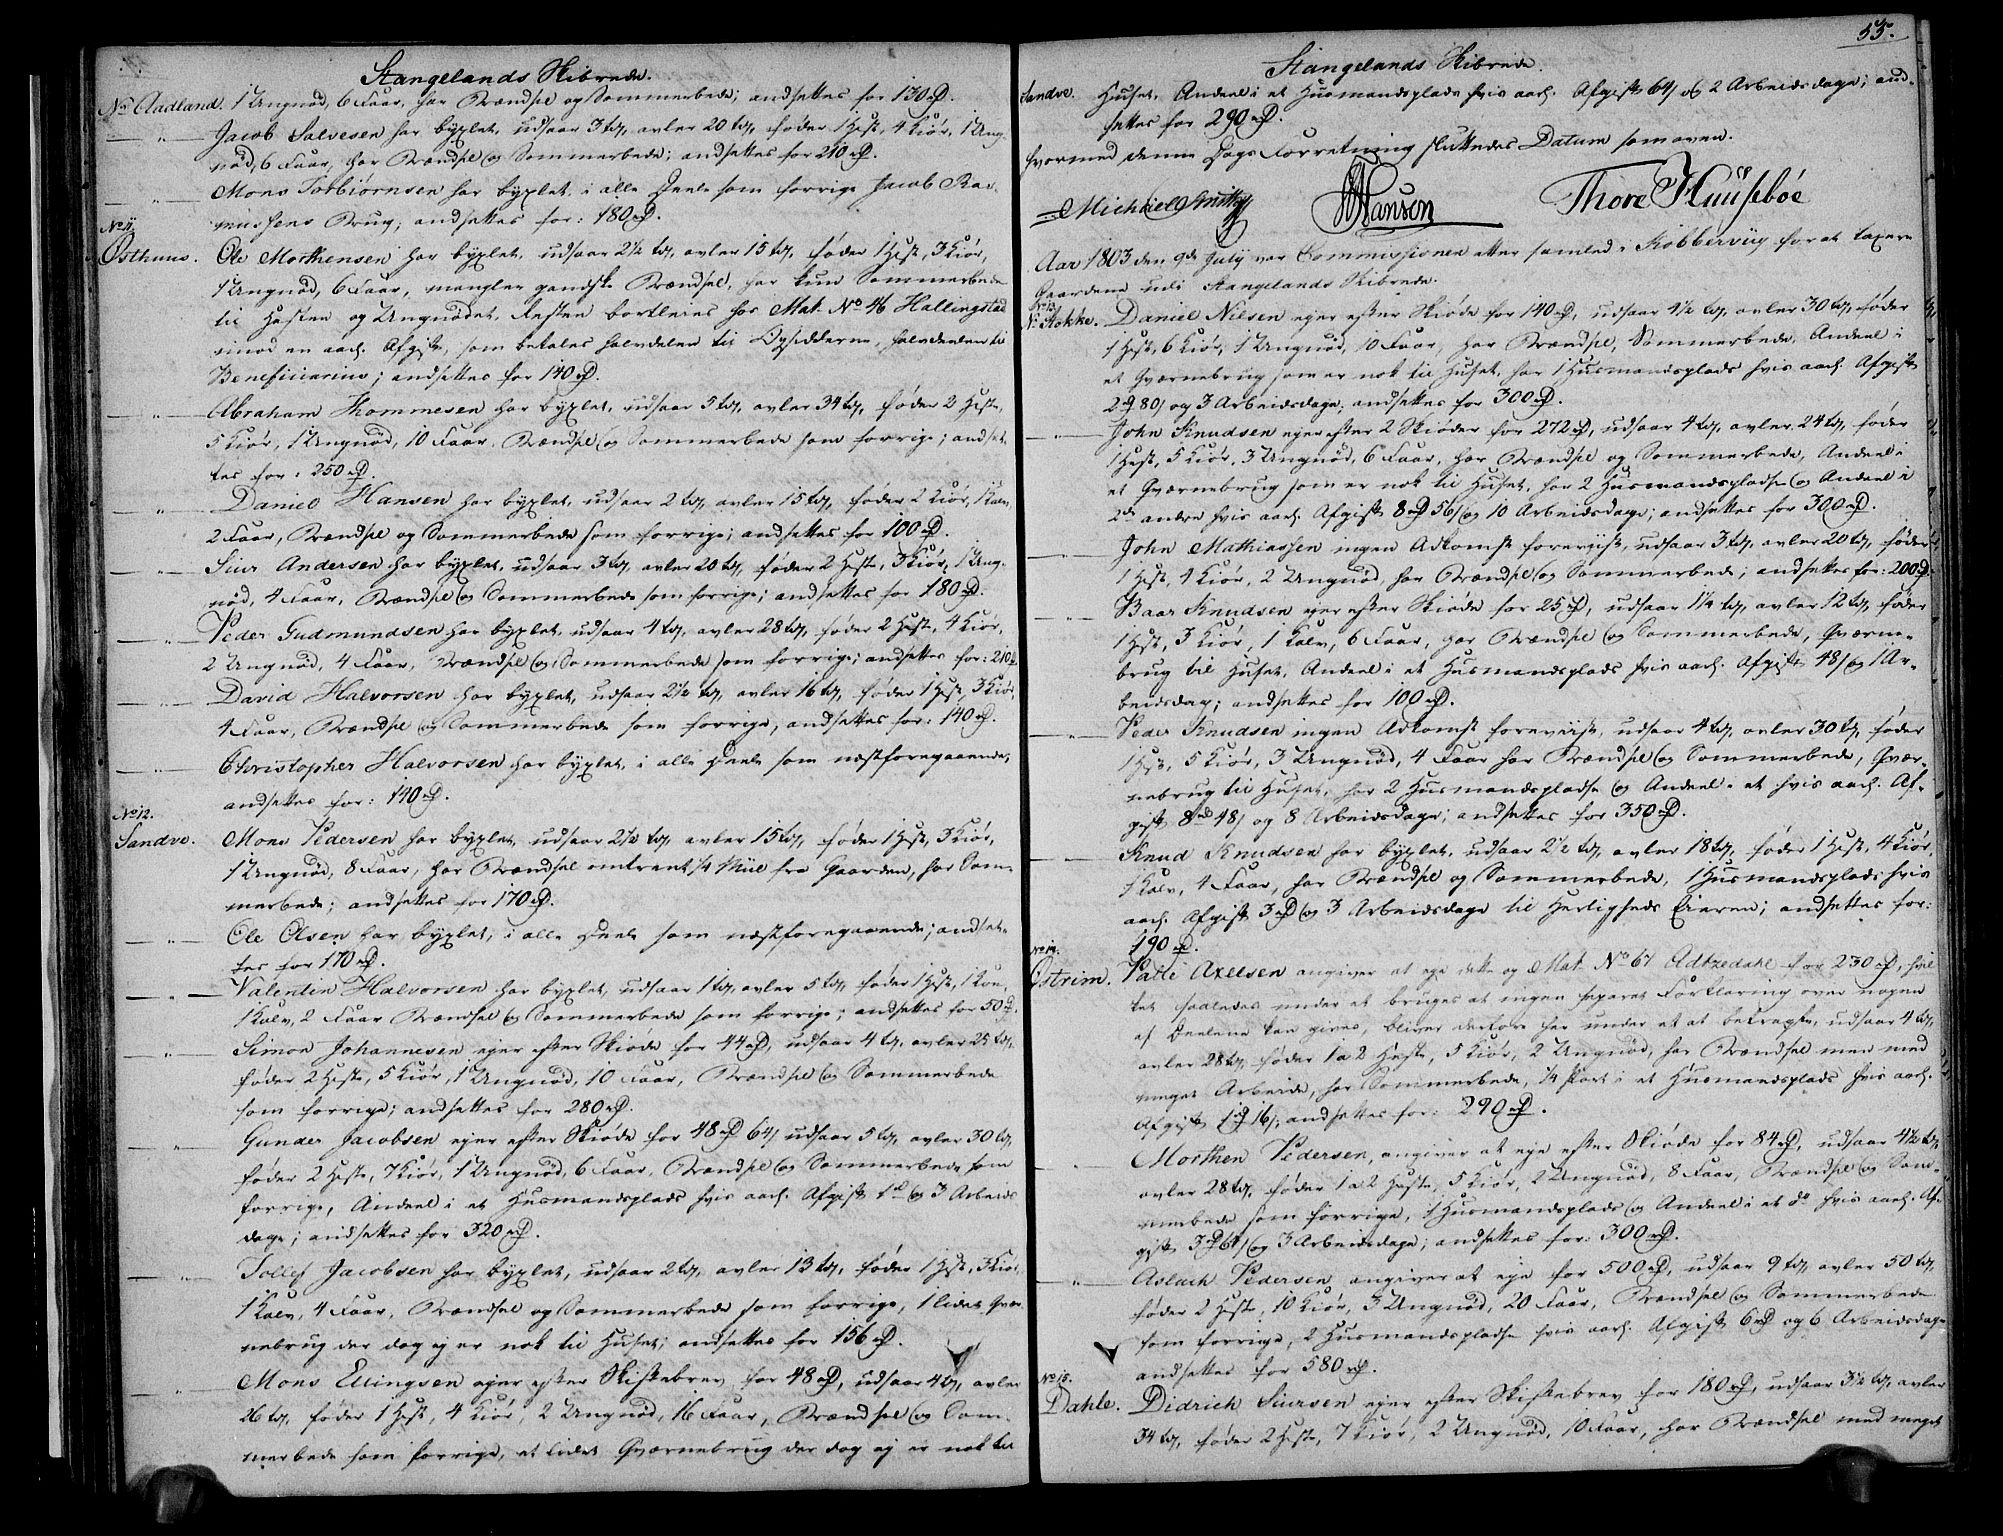 Stangelands Skibrede.
No Aadland. 1 Ungnød, 6 Faar, har Brændsel og Sommerbede; andsettes for 130 rD.
Jacob Salvesen har byxlet, udsaar 3 td, avler 20 td, føder 1 Hest, 4 Kiør, 1 Ung-
nød, 6 Faar, har Brændsel og Sommerbede; andsettes for 210 rD.
Mons Torbiørnsen har byxlet, i alle Deele som forrige Jacob Ras-
mussens Brug; andsettes for: 180 rD.
No 11.
Østhuus. Ole Morthensen har byxlet, udsaar 2½ td, avler 15 td, føder 1 Hest, 3 Kiør,
1 Ungnød, 6 Faar, mangler gandske Brændsel, har kun Sommerbede
til Hesten og Ungnødet, Resten bortleies hos Mat. No 46 Hallingstad
imod en aarl. Afgift, som betales halvdelen til Opsidderne, halvdeelen til
Beneficiarius; andsettes for 140 rD.
Abraham Thommesen har byxlet, udsaar 5 td, avler 34 td, føder 2 Heste,
5 Kiør, 1 Ungnød, 10 Faar, Brændsel og Sommerbede som forrige; andset-
tes for: 250 rD.
Daniel Hansen har byxlet, udsaar 2 td, avler 15 td, føder 2 Kiør, 1 Kalv,
2 Faar, Brændsel og Sommerbede som forrige; andsettes for 100 rD.
Siur Andersen har byxlet, udsaar 3 td, avler 20 td, føder 2 Heste, 3 Kiør, 1 Ung-
nød, 4 Faar, Brændsel og Sommerbede som forrige; andsettes for 180 rD.
Peder Gudmundsen har byxlet, udsaar 4 td, avler 28 td, føder 2 Heste, 4 Kiør,
2 Ungnød, 4 Faar, Brændsel og Sommerbede som forrige; andsettes for: 210 rD
David Halvorsen har byxlet, udsaar 2½ td, avler 16 td, føder 1 Hest, 3 Kiør,
4 Faar, Brændsel og Sommerbede som forrige, andsettes for: 140 rD.
Christopher Halvorsen har byxlet, i alle Deele som næstforegaaende,
andsettes for: 140 rD.
No 12.
Sandve. Mons Pedersen har byxlet, udsaar 2½ td, avler 15 td, føder 1 Hest, 3 Kiør,
1 Ungnød, 8 Faar, har Brændsel omtrent ¼ Miil fra Gaarden, har Som-
merbede; andsettes for 170 rD.
Ole Olsen har byxlet, i alle Deele som næstforegaaende; andset-
tes for 170 rD.
Valentin Halvorsen har byxlet, udsaar 1 td, avler 5 td, føder 1 Hest, 1 Koe,
1 Kalv, 2 Faar Brændsel og Sommerbede som forrige; andsettes for 50 rD.
Simon Johannesen ejer efter Skiøde for 44 rD, udsaar 4 td, avler 25 td,
føder 2 Heste, 5 Kiør, 1 Ungnød, 10 Faar, Brændsel og Sommerbede
som forrige; andsettes for 280 rD.
Gunder Jacobsen ejer efter Skiøde for 48 rD 64 s udsaar 5 td, avler 30 td,
føder 2 Heste, 7 Kiør, 1 Ungnød, 6 Faar, Brændsel og Sommerbede som
forrige, Andeel i et Husmandsplads hvis aarl. Afgift 1 rd og 3 Arbeids
dage; andsettes for 320 rD.
Tollef Jacobsen har byxlet, udsaar 2 td, avler 13 td, føder 1 Hest, 3 Kiør,
1 Kalv, 4 Faar, Brændsel og Sommerbede som forrige, 1 lidet Qvær-
nebrug der dog ej er nok til Huset; andsettes for 156 rD.
Mons Ellingsen ejer efter Skiftebrev for 48 rD, udsaar 4 td, avler
26 td, føder 1 Hest, 4 Kiør, 2 Ungnød, 16 Faar, Brændsel og Som-
merbede som forrige, et lidet Qværnebrug der dog ej er nok til
55.
Stangelands Skibrede.
Sandve. Huset, Andeel i et Husmandsplads hvis aarl. Afgift 64 s og 2 Arbeidsdage; and-
settes for 290 rD.
hvormed denne Dags Forretning sluttedes Datum som oven.
Michael Smith Hansen Thore Huusebøe
Aar 1803 den 9de July var Commissionen atter samled i Kobberviig for at taxere
Gaardene udi Stangelands Skibrede.
No 13.
N. Stokke. Daniel Nilsen ejer efter Skiøde for 140 rD, udsaar 4½ td, avler 30 td, føder
1 Hest, 6 Kiør, 1 Ungnød, 10 Faar, har Brændsel, Sommerbede, Andeel i
et Qværnebrug som er nok til Huset, har 1 Husmandsplads hvis aarl. Afgift
2 rD 80 s og 3 Arbeidsdage; andsettes for 300 rD.
John Knudsen ejer efter 2 Skiøder for 272 rD, udsaar 4 td, avler 24 td, føder
1 Hest, 5 Kiør, 3 Ungnød, 6 Faar, har Brændsel og Sommerbede, Andeel i
et Qværnebrug som er nok til Huset, har 2 Husmandspladse og Andeel i
2de andre hvis aarl. Afgift 8 rD 56 s og 10 Arbeidsdage; andsettes for 300 rD.
John Mathiassen ingen Adkomst foreviist, udsaar 3 td, avler 20 td, føder
1 Hest, 4 Kiør, 2 Ungnød, har Brændsel og Sommerbede; andsettes for: 200 rD.
Baar Knudsen ejer efter Skiøde for 25 rD, udsaar 1¼ td, avler 12 td, føder
1 Hest, 3 Kiør, 1 Kalv, 6 Faar, har Brændsel og Sommerbede, Qværne-
brug til Huset, Andeel i et Husmandsplads hvis aarl. Afgift 48 s og 1 Ar-
beidsdag; andsettes for 100 rD.
Peder Knudsen ingen Adkomst foreviist, udsaar 4 td, avler 30 td, føder
1 Hest, 5 Kiør, 3 Ungnød, 4 Faar har Brændsel og Sommerbede, Qvær-
nebrug til Huset, har 2 Husmandspladse og Andeel i et hvis aarl. Af-
gift 8 rd 48 s og 8 Arbeidsdage; andsettes for 350 rD.
Knud Knudsen har byxlet, udsaar 2½ td, avler 18 td, føder 1 Hest, 4 Kiør,
1 Kalv, 4 Faar, har Brændsel og Sommerbede, 1 Husmandsplads hvis
aarl. Afgift 3 rD og 3 Arbeidsdage til Herligheds Eieren; andsettes for:
190 rD.
No 14.
Østrim. Palle Axelsen angiver at eje dette og Mat. No 67 Adtzedahl for 230 rD, hvil
tet saaledes under et bruges at ingen separat Forklaring over nogen
af Deelene kan gives, bliver derfore her under et at betragte, udsaar 4 td,
avler 28 td, føder 1 a 2 Heste, 5 Kiør, 2 Ungnød, har Brændsel men med
meget Arbeide, har Sommerbede, ¼ Part i et Husmandsplads hvis aarl.
Afgift 1 rD 16 s, andsettes for: 290 rD.
Morthen Pedersen, angiver at eje efter Skiøde for 84 rD, udsaar 4½ td,
avler 28 td, føder 1 a 2 Heste, 5 Kiør, 2 Ungnød, 8 Faar, Brændsel og Som-
merbede som forrige, 1 Husmandsplads og Andeel i et do hvis aarl. Af-
gift 3 rD 64 s og 3 Arbeidsdage; andsettes for: 300 rD.
Aslach Pedersen angiver at eje for 500 rD, udsaar 9 td, avler 50 td,
føder 2 Heste, 10 Kiør, 3 Ungnød, 20 Faar, Brændsel og Sommerbede
som forrige, 2 Husmandspladse hvis aarl. Afgift 6 rD og 6 Arbeidsdage
andsettes for 580 rD.
No 15.
Dahle. Didrich Siursen ejer efter Skiftebrev for 180 rD, udsaar 3½ td, avler
34 td, føder 2 Heste, 7 Kiør, 2 Ungnød, 10 Faar, har Brændsel med meget